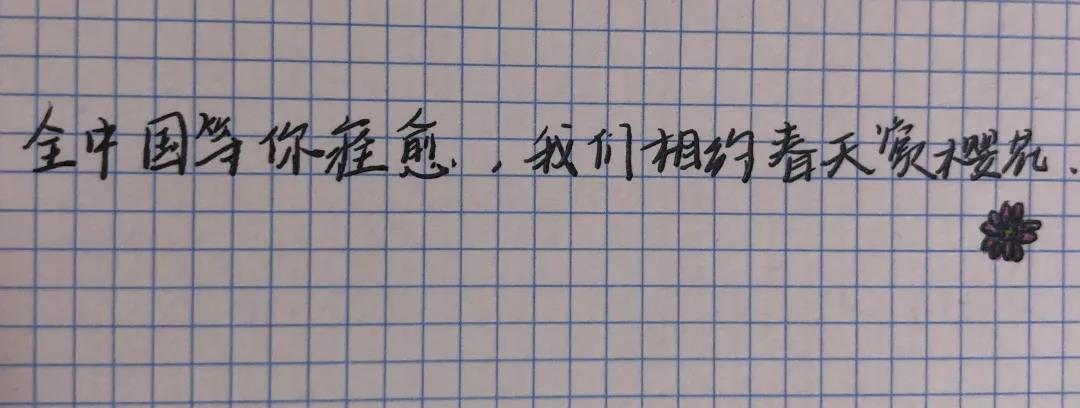 全中国等你痊愈，我们相约春天赏樱花.